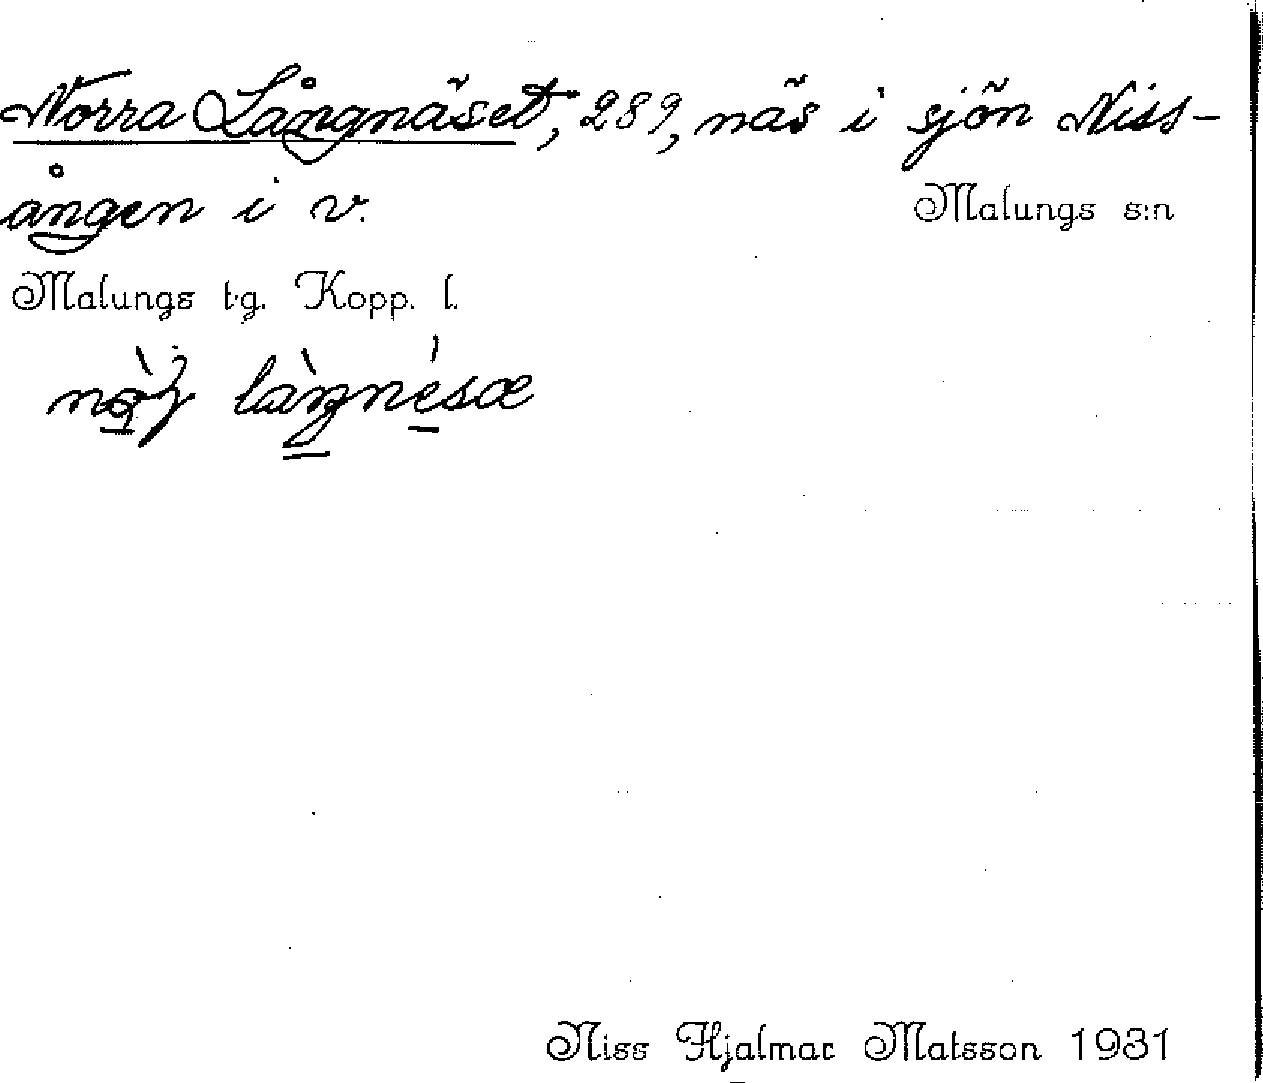 Norra Långnäset, 289, näs i sjön Niss-
ången i v.
Malungs s:n
Malungs tg. Kopp. l.
Niss Hjalmar Matsson 1931